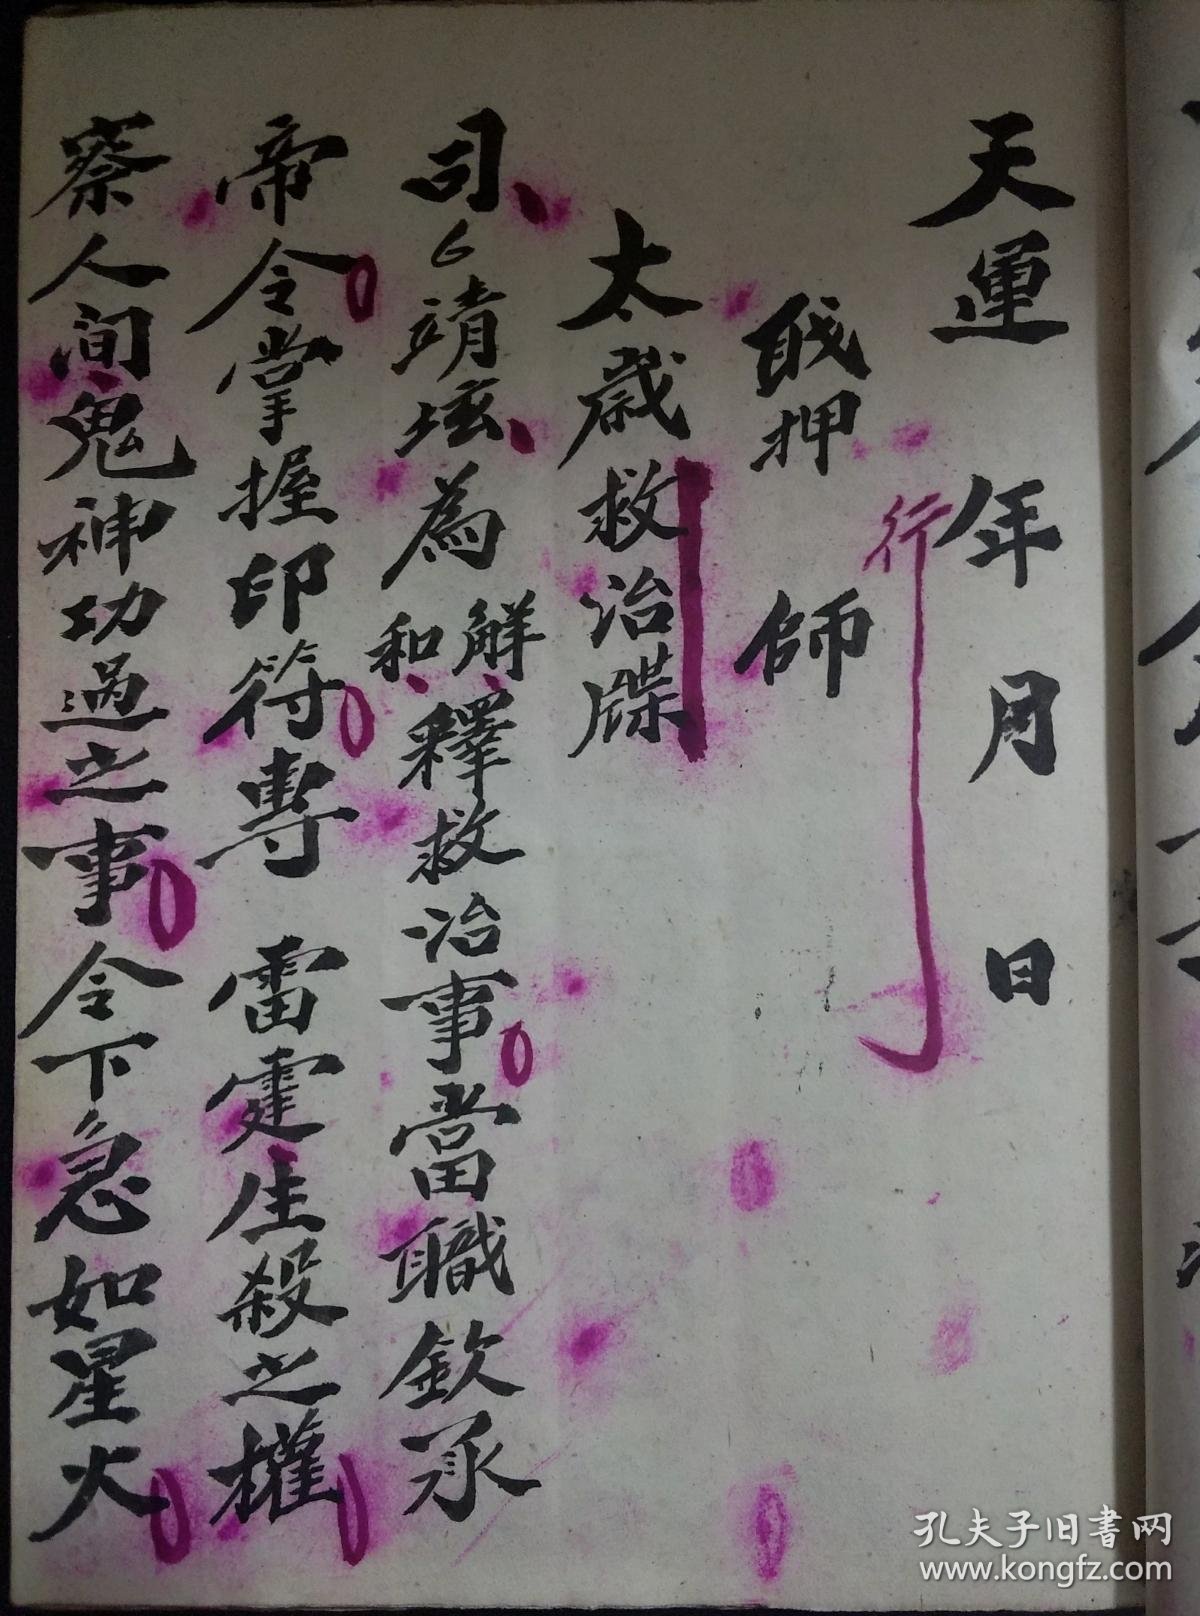 天運 年 月 日
行
戝押 師
太歲救治牒
司 靖坛為解和釋救治事當職欽承
帝令掌握印符專 雷霆生殺之權
察人间鬼神功過之事令下急如星火
孔夫子旧書网
www.kongfz.com